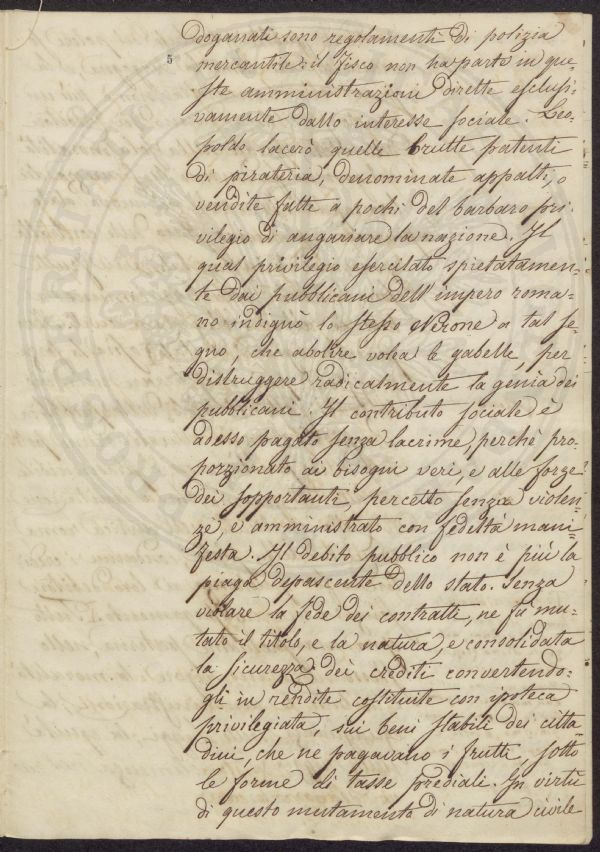 doganali sono regolamenti di polizia
5
mercantile: il fisco non ha parte in que=
ste amministrazioni dirette esclusi=
vamente dallo interesse sociale. Leo=
poldo lacerò quelle brutte patenti
di pirateria, denominate appalti, o
vendite fatte a pochi del barbaro pri=
vilegio di angariare la nazione. Il
qual privilegio esercitato spietatamen=
te dai pubblicani dell'impero roma=
no indignò lo stesso Nerone a tal se=
gno, che abolire volea le gabelle per
distruggere radicalmente la genìa dei
pubblicani. Il contributo sociale è
adesso pagato senza lacrime, perchè pro=
porzionato ai bisogni veri, e alle forze
dei sopportanti, percetto senza violen=
ze, e amministrato con fedeltà mani=
festa. Il debito pubblico non è più la
piaga depascente dello stato. Senza
violare la fede dei contratti, ne fù mu=
tato il titolo, e la natura, e consolidata
la sicurezza dei crediti convertendo=
gli in rendite costituite con ipoteca
privilegiata, sui beni stabili dei citta
dini, che ne pagavano i frutti, sotto
le forme di tasse prediali. In virtù
di questo mutamento di natura civile